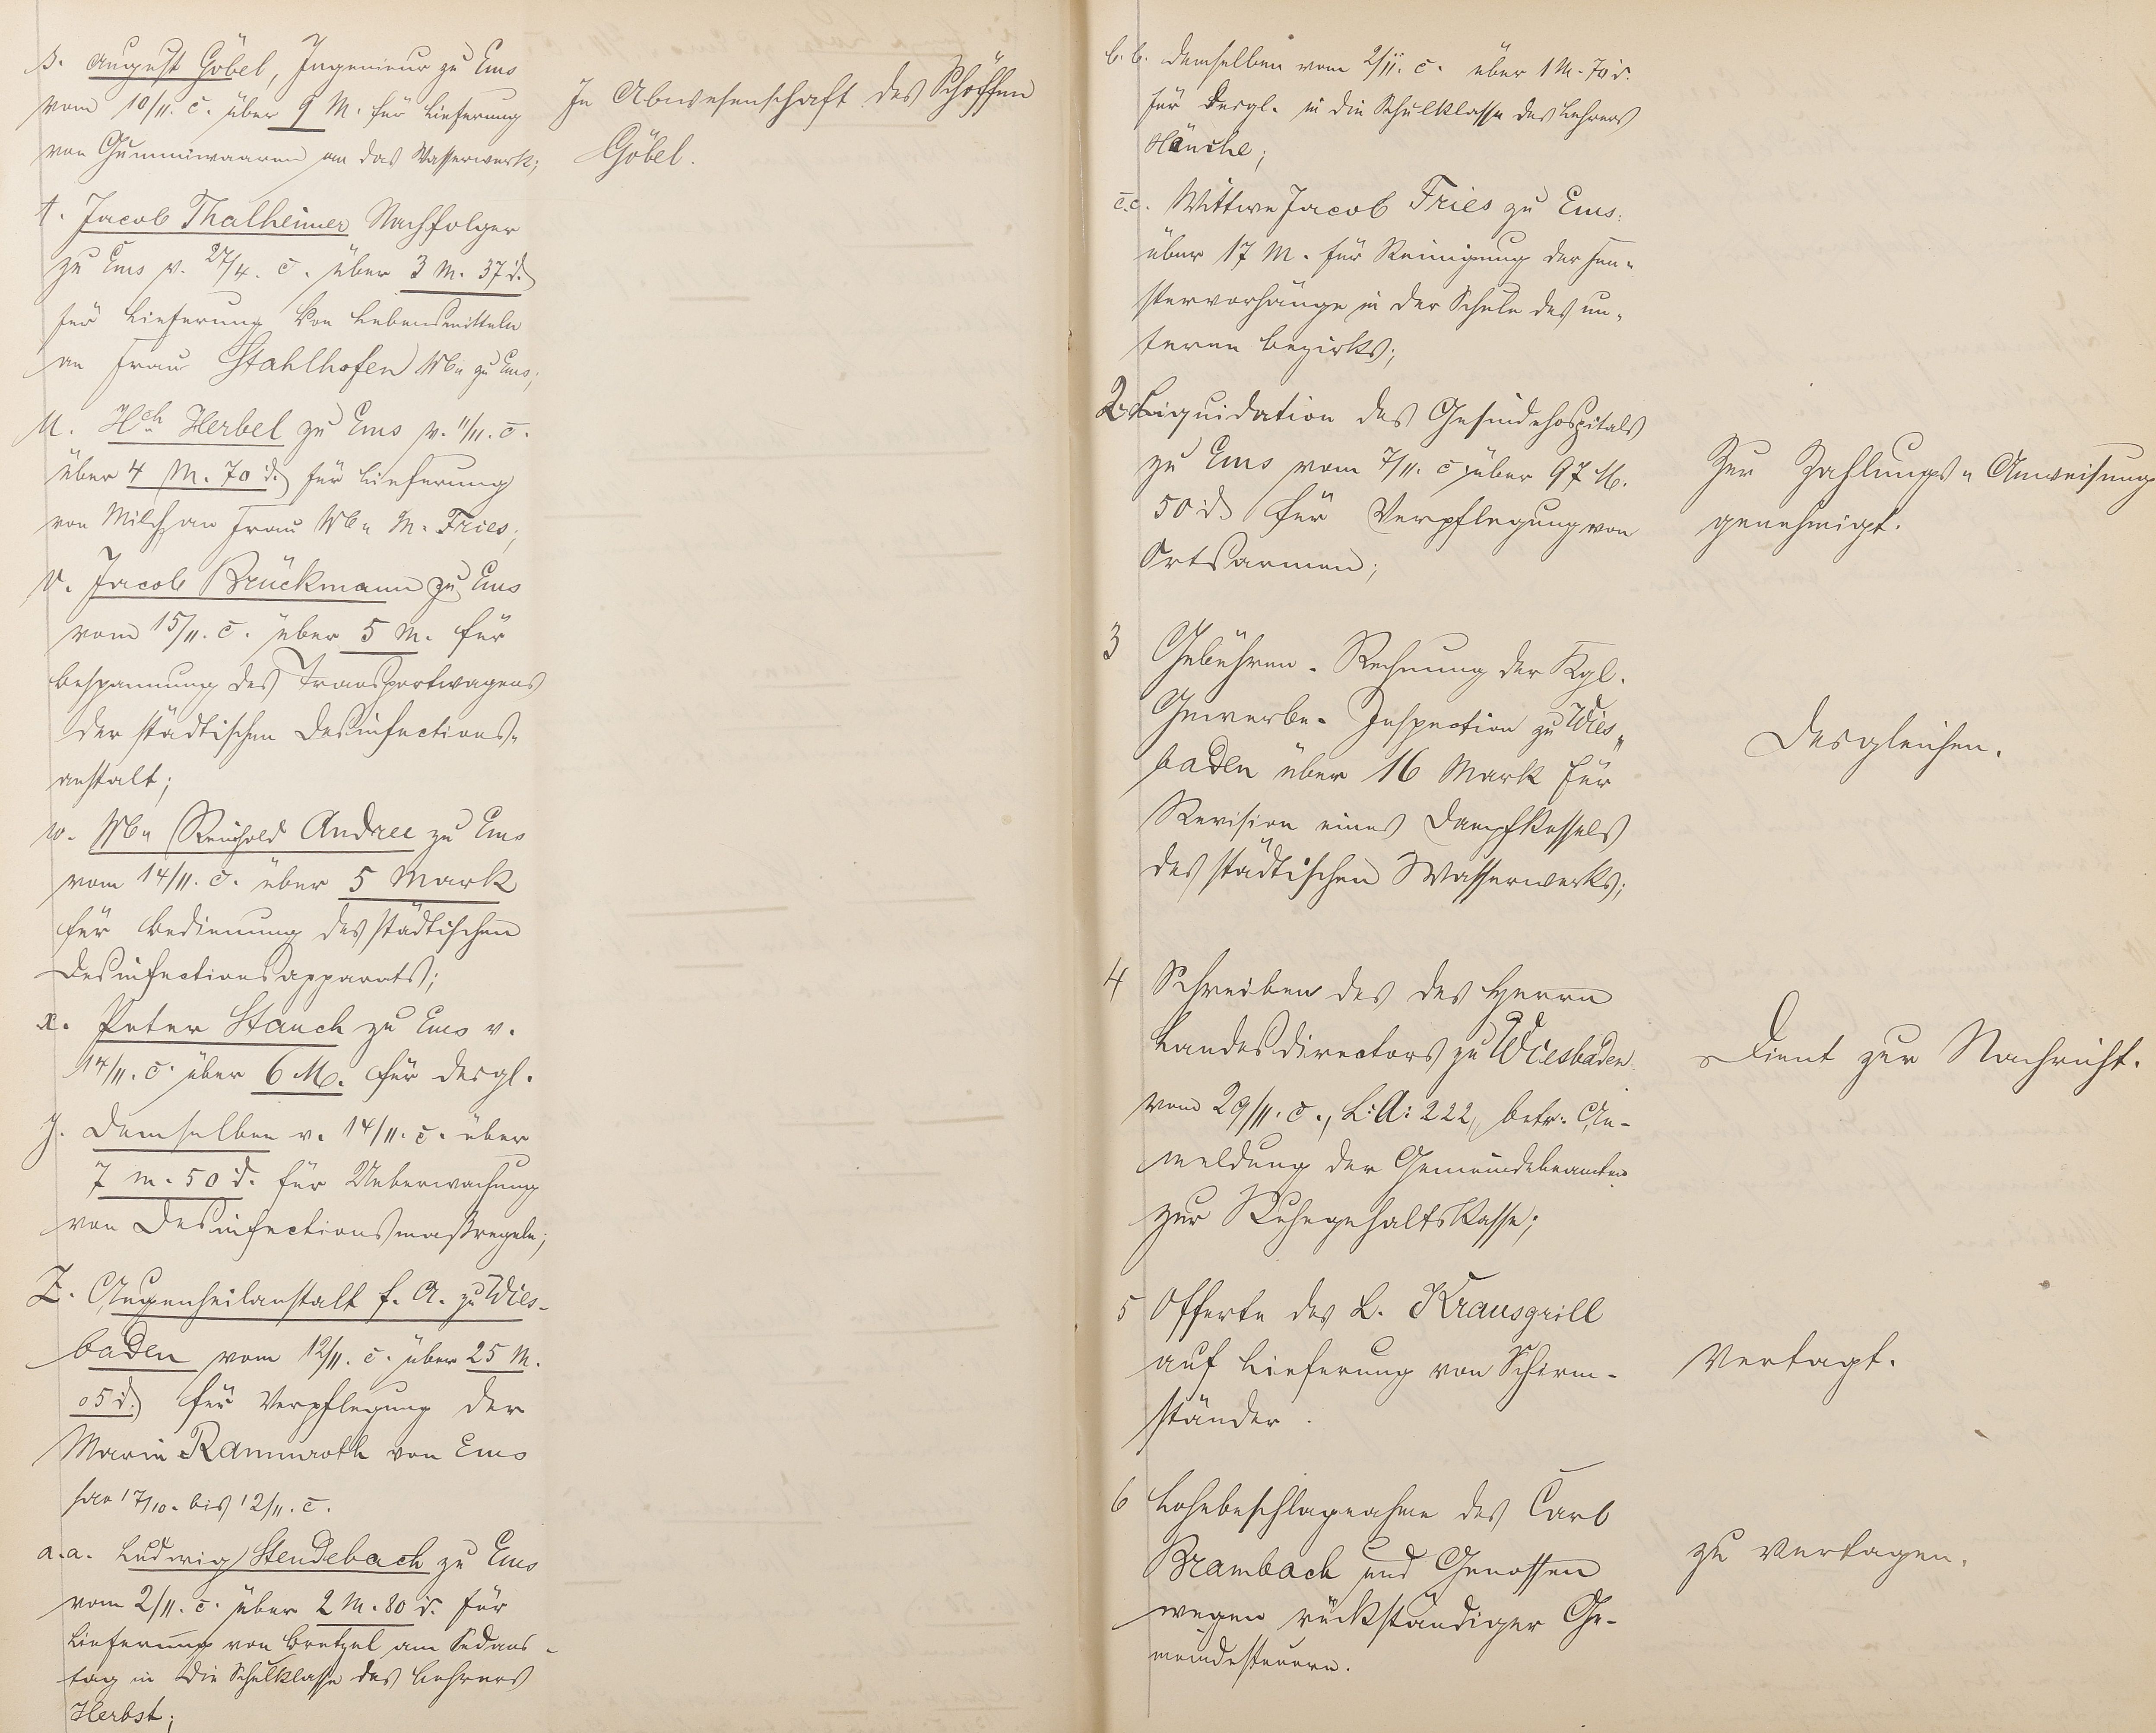 s. August Göbel, Ingenieur zu Ems
vom 10/11. c. über 9 M. für Lieferung
von Gummiwaaren an das Wasserwerk;
In Abwesenschaft des Schöffen
Göbel.
t. Jacob Thalheimer Nachfolger
zu Ems v. 27/4. c. über 3 M. 37 d.
für Lieferung von Lebensmitteln
an Frau Stahlhofen Wb. zu Ems;
u. Hch Herbel zu Ems v. 11/11. c.
über 4 M. 70 d. für Lieferung
von Milch an Frau Wb. M. Fries;
v. Jacob Brückmann zu Ems
vom 15/11. c. über 5 M. für
Bespannung des Transportwagens
der städtischen Desinfections-
anstalt;
w. Wb. Reinhold Andree zu Ems
vom 14/11. c. über 5 Mark
für Bedienung des städtischen
Desinfectionsapparats;
x. Peter Stauch zu Ems v.
14/11. c. über 6 M. für desgl.
y. Demselben v. 14/11. c. über
7 M. 50 d. für Ueberwachung
von Desinfectionsmaßregeln;
z. Augenheilanstalt f. A. zu Wies-
baden vom 12/11. c. über 25 M.
05 d. für Verpflegung der
Marie Rammroth von Ems
pro 17/10. bis 12/11. c.
a.a. Ludwig Stendebach zu Ems
vom 2/11. c. über 2 M. 80 d. für
Lieferung von Bretzel am Sedans-
tag in die Schulklasse des Lehrers
Herbst;
b.b. Demselben vom 2/11. c. über 1 M. 70 d.
für desgl. in die Schulklasse des Lehrers
Hänche;
c.c. Wittwe Jacob Fries zu Ems
über 17 M. für Reinigung der Fen-
stervorhänge in der Schule des un-
teren Bezirks;
2. Liquidation des Gesindehospitals
zu Ems vom 7/11. c. über 97 M.
50 d. für Verpflegung von
Ortsarmen;
Zur Zahlungs-Anweisung
genehmigt.
3 Gebühren-Rechnung der Kgl.
Gewerbe-Inspection zu Wies-
baden über 16 Mark für
Revision eines Dampfkessels
des städtischen Wasserwerks;
Desgleichen.
4 Schreiben des des Herrn
Landesdirectors zu Wiesbaden
vom 29/11. c., L: A: 222, betr. An-
meldung der Gemeindebeamten
zur Ruhegehaltskasse;
Dient zur Nachricht.
5 Offerte des L. Krausgrill
auf Lieferung von Schirm-
ständer.
Vertagt.
6 Lohnbeschlagnahme des Carl
Brambach und Genossen
wegen rückständiger Ge-
meindesteuern.
zu vertagen.